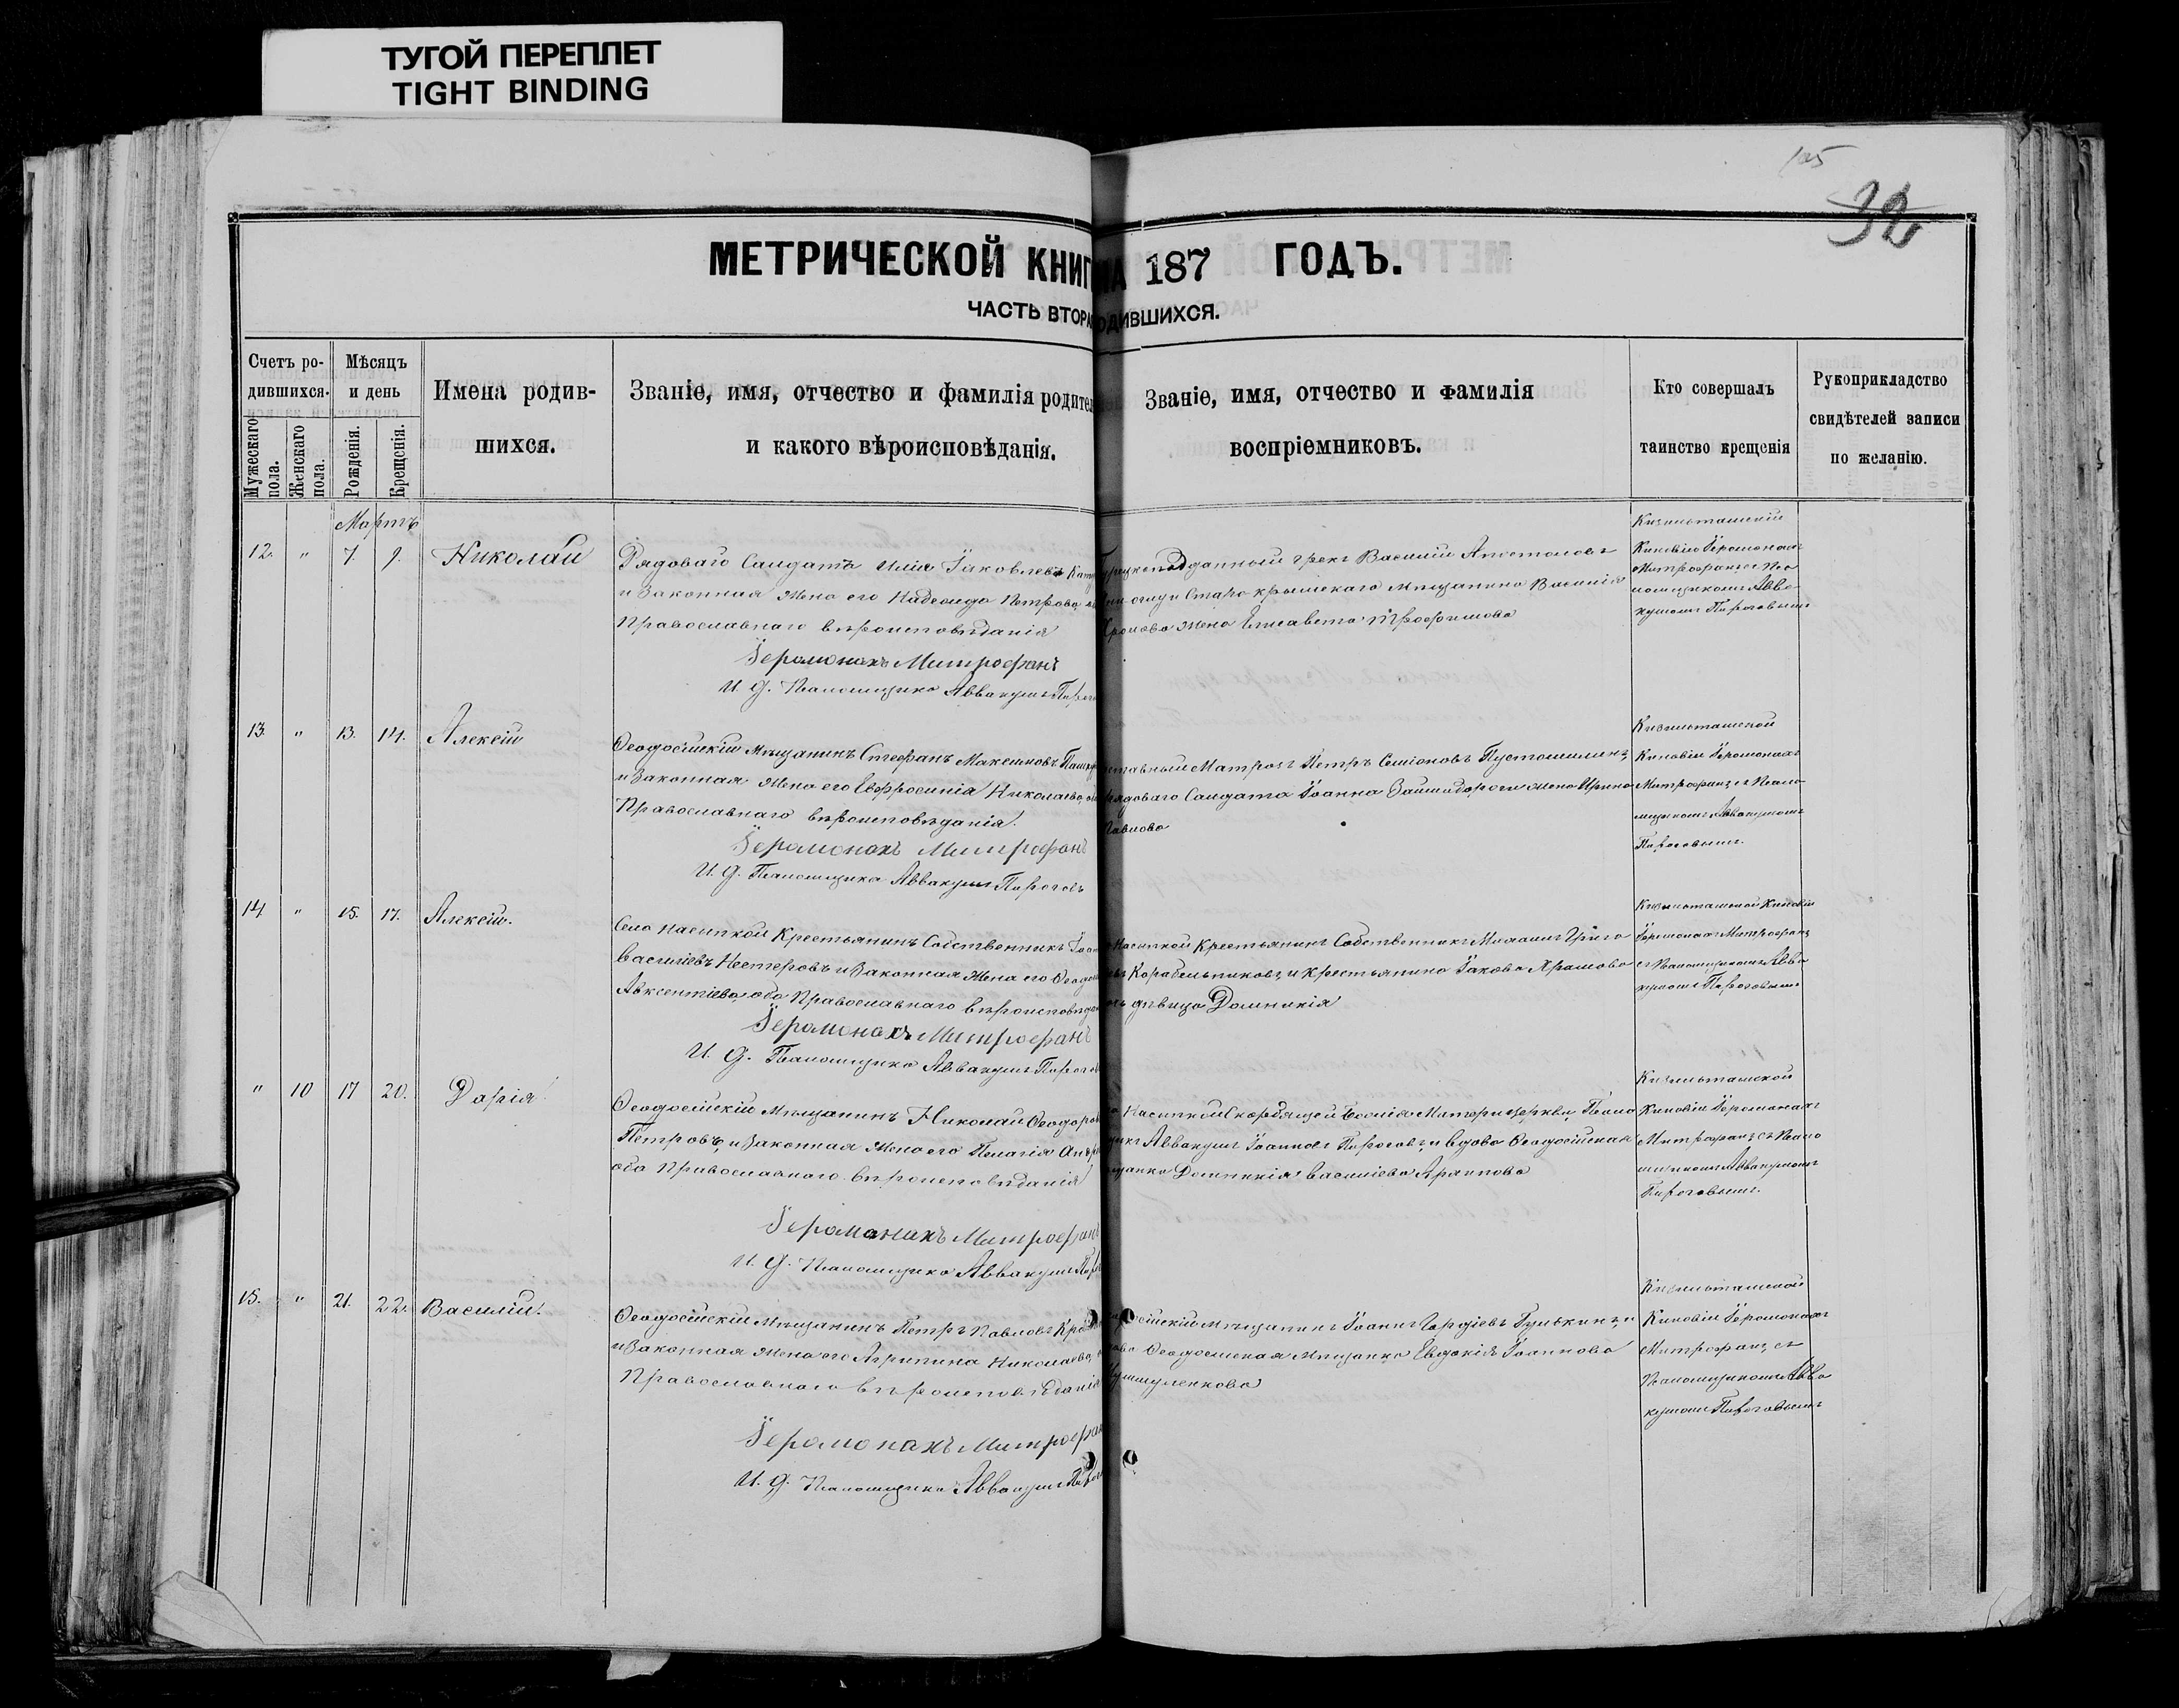 ТУГОЙ ПЕРЕПЛЕТ
TIGHT BINDING
105
32
МЕТРИЧЕСКОЙ КНИГ НА 187 ГОДЪ.
ЧАСТЬ ВТОРА ОДИВШИХСЯ.
Счетъ ро-
дившихся.
Мужескаго пола.
Женскаго пола.
Мѣсяцъ
и день
Рожденія.
Крещенія.
Имена родив-
шихся.
Званіе, имя, отчество и фамилія родител
и какого вѣроисповѣданія.
Званіе, имя, отчество и фамилія
воспріемниковъ.
Кто совершалъ
таинство крещенія
Рукоприкладство
свидѣтелей записи
по желанію.
Мартъ
12. " 7. 9. Николай
Рядоваго Салдатъ Илія Іаковлевъ
и Законная Жена его Надежда Петрова
Православнаго вѣроисповѣданія
Іеромонахъ Митрофанъ
И. д. Паломщика Аввакумъ Пирог
подданный грекъ Василий Апостоловъ
Старо крымскаго мѣщанина Василія
жена Елисавета Трофимова
Кизильташской
Киновіи Іеромонахъ
Митрофанъ съ Пса
ломщикомъ Авва
кумомъ Пироговымъ
13. " 13. 14. Алексій
Ѳеодосійскій Мѣщанинъ Стефанъ Максимовъ
и Законная Жена его Евфросинія Николаева
Православнаго вѣроисповѣданія.
Іеромонахъ Митрофанъ
И. д. Псаломщика Аввакумъ Пироговъ
ставный Матрозъ Петръ Семіоновъ Пустошилинъ,
рядоваго Салдата Іоанна жена Ирина
Павлова
Кизильташской
Киновіи Іеромонахъ
Митрофанъ съ Псало
мщикомъ Аввакумомъ
Пироговымъ.
14 " 15. 17. Алексій.
Села Насыпкой Крестьянинъ Собственникъ Іоан
Василіевъ Нестеровъ и Законная Жена его Ѳеодо
Авксентіева, оба Православнаго вѣроисповѣдан
Іеромонахъ Митрофанъ
И. д. Псаломщика Аввакумъ Пирогов
Насыпкой Крестьянинъ Собственникъ Михаилъ Григо
евъ Корабельниковъ, и Крестьянина Іакова Храмова
дѣвица Домникія
Кизильташской Киновіи
Іеромонахъ Митрофанъ
съ Псаломщикомъ Авва
кумомъ Пироговымъ
" 10 17 20. Дарія
Ѳеодосійскій Мѣщанинъ Николай Ѳеодоров
Петровъ, и Законная Жена его Пелагія
оба Православнаго вѣроисповѣданія
Іеромонахъ Митрофанъ
И. д. Псаломщика Аввакумъ Пиро
Насыпкой Скорбящей Божіей Матери церкви, Псало
щикъ Аввакумъ Іоанновъ Пироговъ, и вдова Ѳеодосійская
щанка Домникія Василіева Арапова
Кизильташской
Киновіи Іеромонахъ
Митрофанъ съ Псало
мщикомъ Аввакумомъ
Пироговымъ.
15. " 21. 22. Василій.
Ѳеодосійскій Мѣщанинъ Петръ Павловъ
и Законная Жена его Агрипина Николаева,
Православнаго вѣроисповѣданія
Іеромонахъ Митрофан
И. д. Псаломщика Аввакумъ Пирог
осійскій мѣщанинъ Іоанъ Гордіевъ и
Ѳеодосійская Мѣщанка Евдокія Іоаннова
Кизильташской
Киновіи Іеромонахъ
Митрофанъ, съ
Псаломщикомъ Авва
кумомъ Пироговымъ